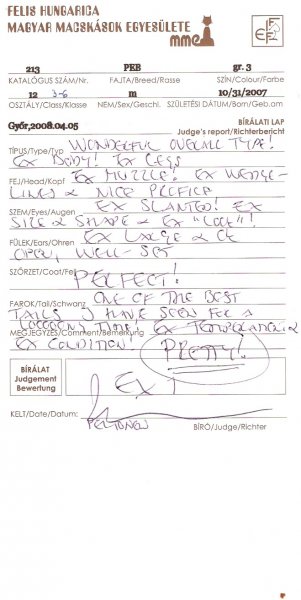 FELIS HUNGARICA
MAGYAR MACSKÁSOK EGYESÜLETE
mme
F E
213 PEB gr. 3
KATALÓGUS SZÁM/Nr. FAJTA/Breed/Rasse SZÍN/Colour/Farbe
12 3-6 m 10/31/2007
OSZTÁLY/Class/Klasse NEM/Sex/Geschl. SZÜLETÉSI DÁTUM/Born/Geb.am
Győr,2008.04.05 BÍRÁLATI LAP
Judge's report/Richterbericht
TÍPUS/Type/Typ WONDERFUL OVERALL TYPE!
EX BODY! EX LEGS
FEJ/Head/Kopf EX MUZZLE! EX WEDGE-
LINES & NICE PROFILE
SZEM/Eyes/Augen EX SLANTED! EX
SIZE & SHAPE & EX "LOOK"!
FÜLEK/Ears/Ohren EX LARGE &
OPEN, WELL-SET
SZŐRZET/Coat/Fell
PERFECT!
FAROK/Tail/Schwanz ONE OF THE BEST
TAILS I HAVE SEEN FOR A
MEGJEGYZÉS/Comment/Bemerkung LOOOONG TIME! EX TEMPERAMENT &
EX CONDITION! PRETTY!
BÍRÁLAT
Judgement
Bewertung
EX 1
KELT/Date/Datum: BÍRÓ/Judge/Richter
PELTONEN